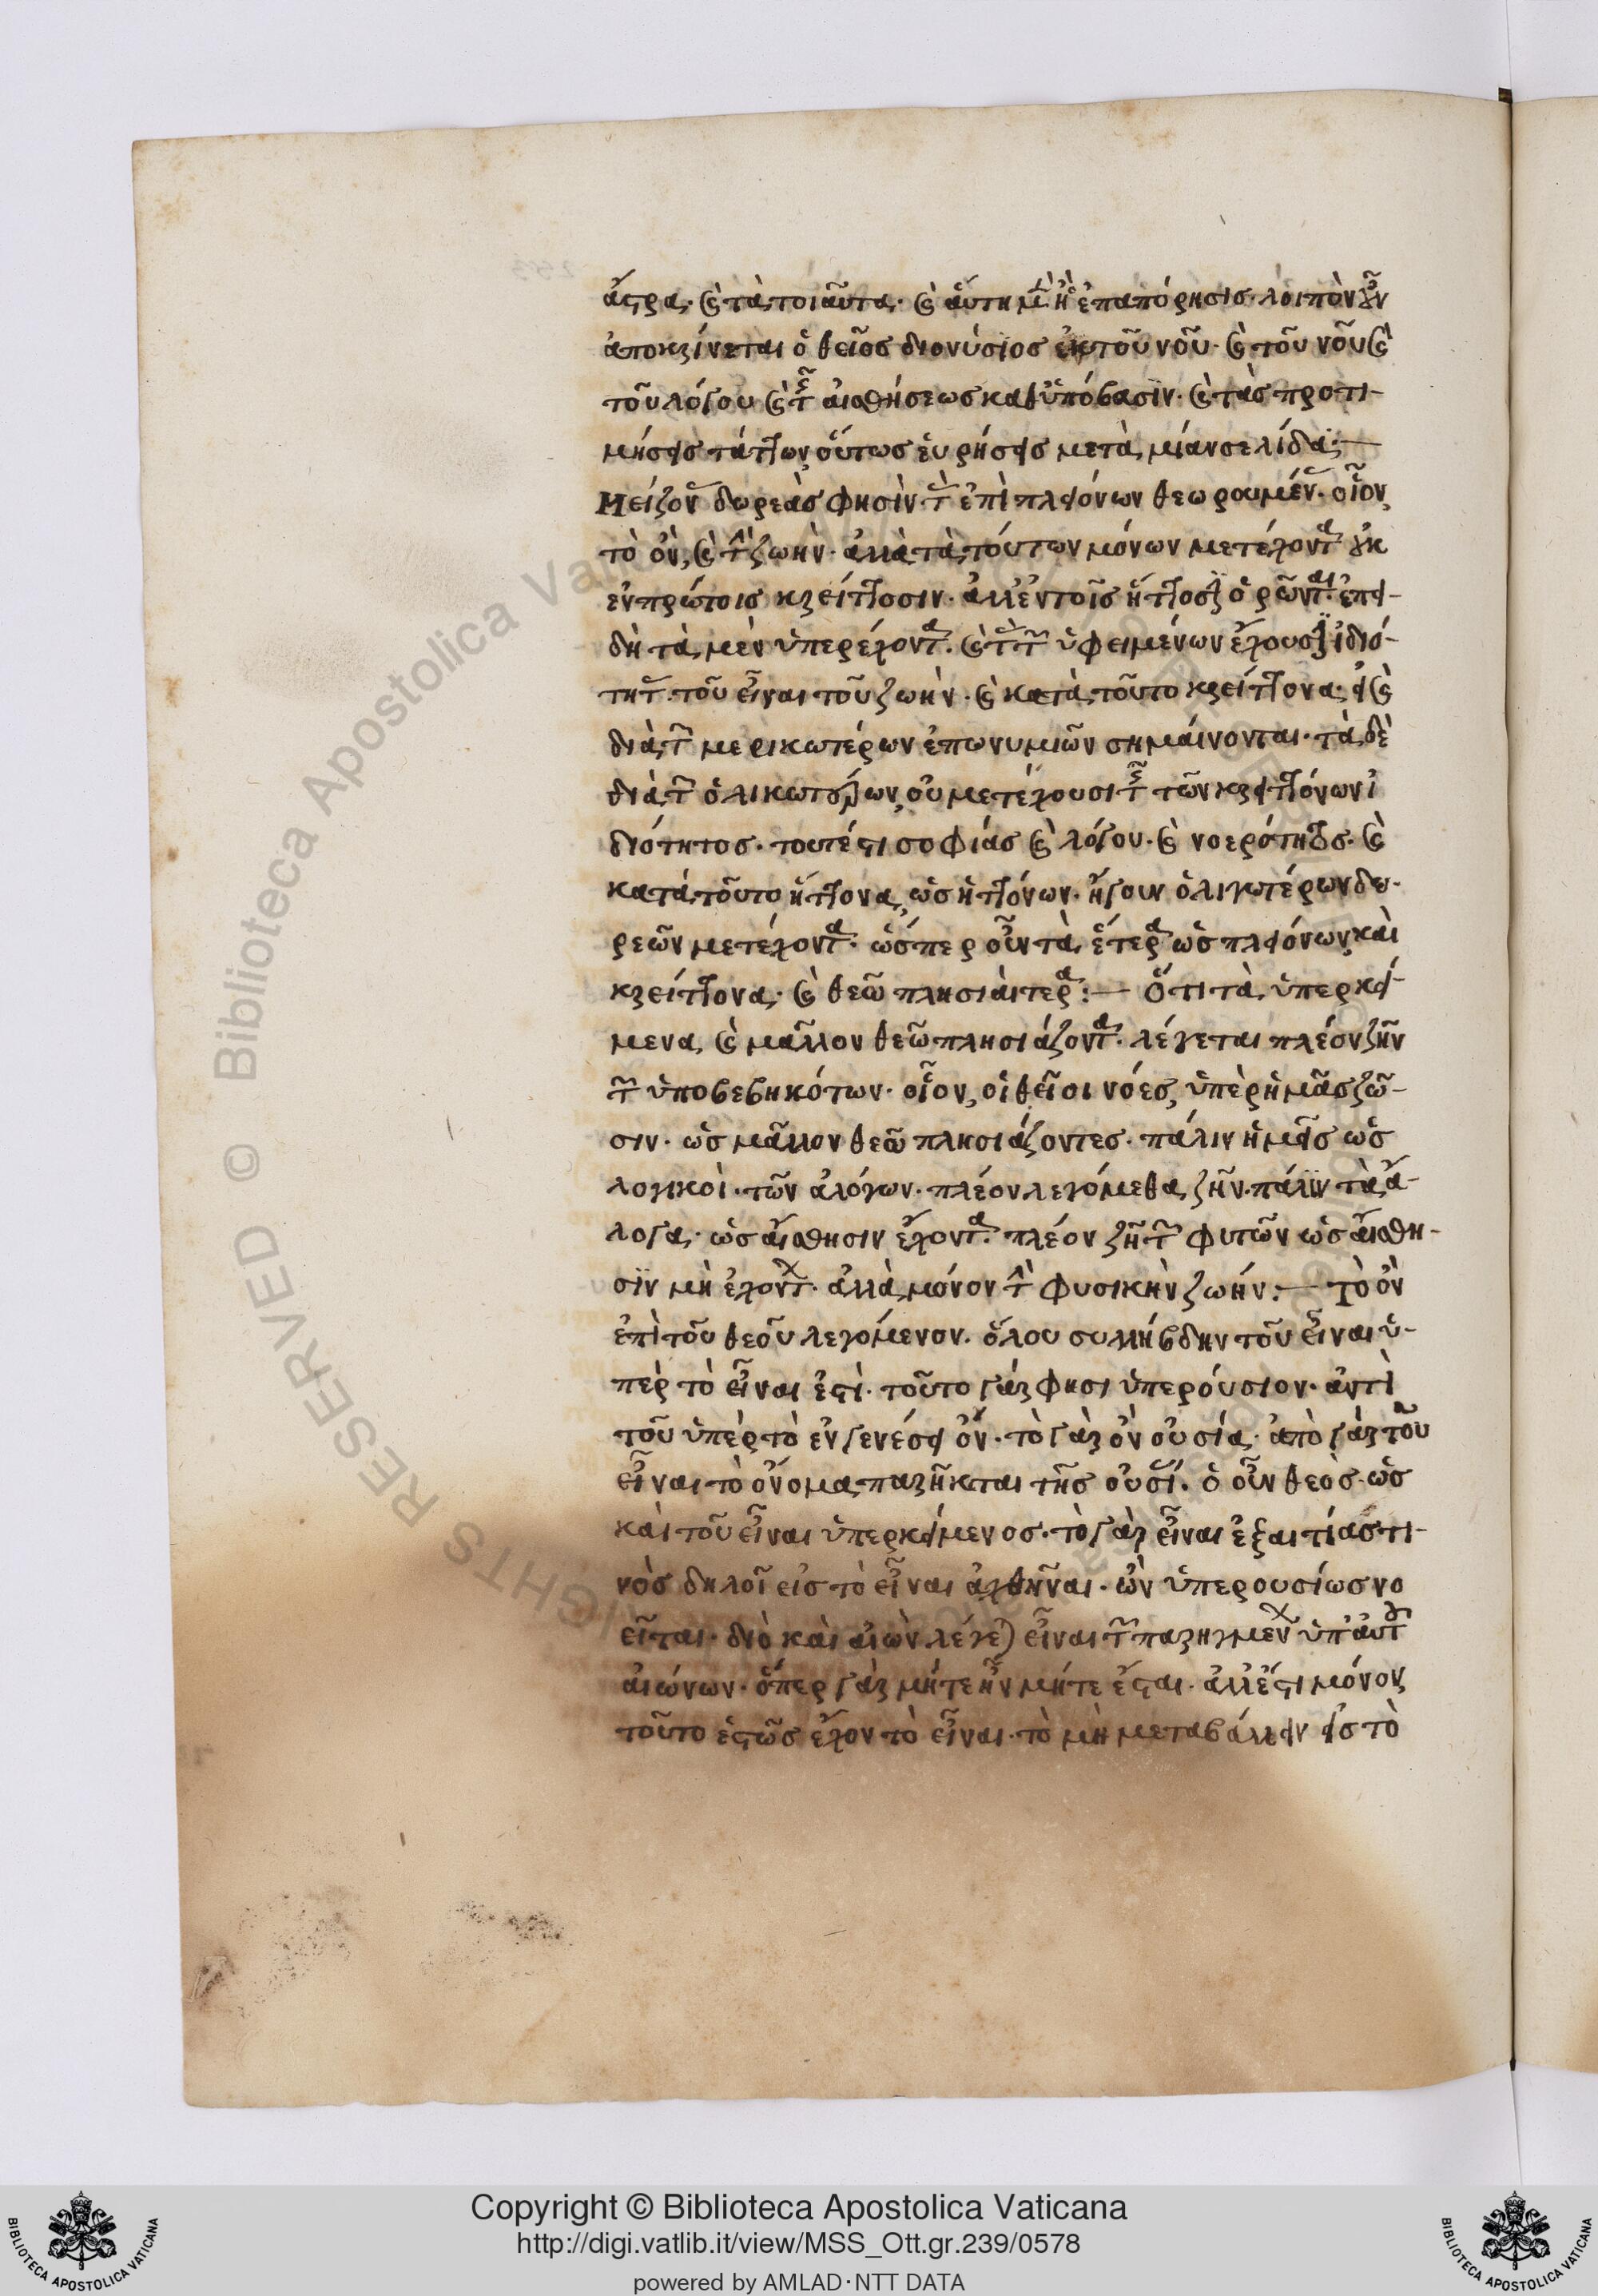 ἄστρα· καὶ τὰ τοιαῦτα· καὶ αὕτη μὲν ἡ ἐπαπόρησις· λοιπὸν οὖν
ἀποκρίνεται ὁ θεῖος διονύσιος ἐκ τοῦ νοῦ· καὶ τοῦ νοῦ καὶ
τοῦ λόγου καὶ τῆς αἰσθήσεως καθ ὑπόβασιν· καὶ τὰς προτι-
μήσεις τάττων οὕτως εὑρήσεις μετὰ μίαν σελίδα:—
Μείζονας δωρεὰς φησὶν· τὰς ἐπὶ πλειόνων θεωρουμένας· οἷον
τὸ ὂν, καὶ τὴν ζωὴν· ἀλλὰ τὰ τούτων μόνων μετέχοντα οὐκ
ἐν πρώτοις κρείττοσιν· ἀλλ ἐν τοῖς ἥττοσιν ὁρῶνται· ἐπει-
δὴ τὰ μὲν ὑπερέχοντα· καὶ τὰς τῶν ὑφειμένων ἔχουσιν ἰδιό-
τητας τοῦ εἶναι τοῦ ζωὴν· καὶ κατὰ τοῦτο κρείττονα· εἰ καὶ
διὰ τῶν μερικωτέρων ἐπωνυμιῶν σημαίνονται· τὰ δὲ
διὰ τῶν ὁλικωτέρων, οὐ μετέχουσι τῆς τῶν κρειττόνων ἰ
διότητος· τουτέστι σοφίας καὶ λόγου· καὶ νοερότητος· καὶ
κατὰ τοῦτο ἥττονα, ὡς ἡττόνων· ἤγουν ὀλιγωτέρων δω-
ρεῶν μετέχοντα· ὥσπερ οὖν τὰ ἕτερα ὡς πλειόνων καὶ
κρείττονα· καὶ θεῶ πλησιαίτερα:— Ὅτι τὰ ὑπερκεί-
μενα, καὶ μᾶλλον θεῶ πλησιάζοντα· λέγεται πλέον ζῆν
τῶν ὑποβεβηκότων· οἷον, οἱ θεῖοι νόες, ὑπὲρ ἡμᾶς ζῶ-
σιν· ὡς μᾶλλον θεῶ πλησιάζοντες· πάλιν ἡμεῖς ὡς
λογικοὶ· τῶν ἀλόγων· πλέον λεγόμεθα ζῆν· πάλιν τὰ ἄ-
λογα· ὡς αἴσθησιν ἔχοντα· πλέον ζῆ τῶν φυτῶν ὡς αἴσθη-
σιν μὴ ἐχόντων· ἀλλὰ μόνον τὴν φυσικὴν ζωήν:— Τὸ ὂν
ἐπὶ τοῦ θεοῦ λεγόμενον· ὅλου συλλήβδην τοῦ εἶναι ὑ-
πὲρ τὸ εἶναι ἐστὶ· τοῦτο γάρ φησι ὑπερούσιον· ἀντὶ
τοῦ ὑπὲρ τὸ ἐν γενέσει ὄν· τὸ γὰρ ὂν οὐσία· ἀπὸ γὰρ τοῦ
εἶναι τὸ ὄνομα παρῆκται τῆς οὐσίας· ὁ οὖν θεὸς ὡς
καὶ τοῦ εἶναι ὑπερκείμενος· τὸ γὰρ εἶναι ἐξ αἰτίας τι-
νὸς δηλοῖ εἰς τὸ εἶναι ἀχθῆναι· ὢν ὑπερουσίως νο
εῖται· διὸ καὶ αἰὼν λέγεται εἶναι τῶν παρηγμένων ὑπ αὐτοῦ
αἰώνων· ὅπερ γὰρ μήτε ἦν μήτε ἔσται· ἀλλ ἔστι μόνον,
τοῦτο ἑστῶς ἔχον τὸ εἶναι· τὸ μὴ μεταβάλλειν εἰς τὸ
Copyright © Biblioteca Apostolica Vaticana
http://digi.vatlib.it/view/MSS_Ott.gr.239/0578
powered by AMLAD·NTT DATA